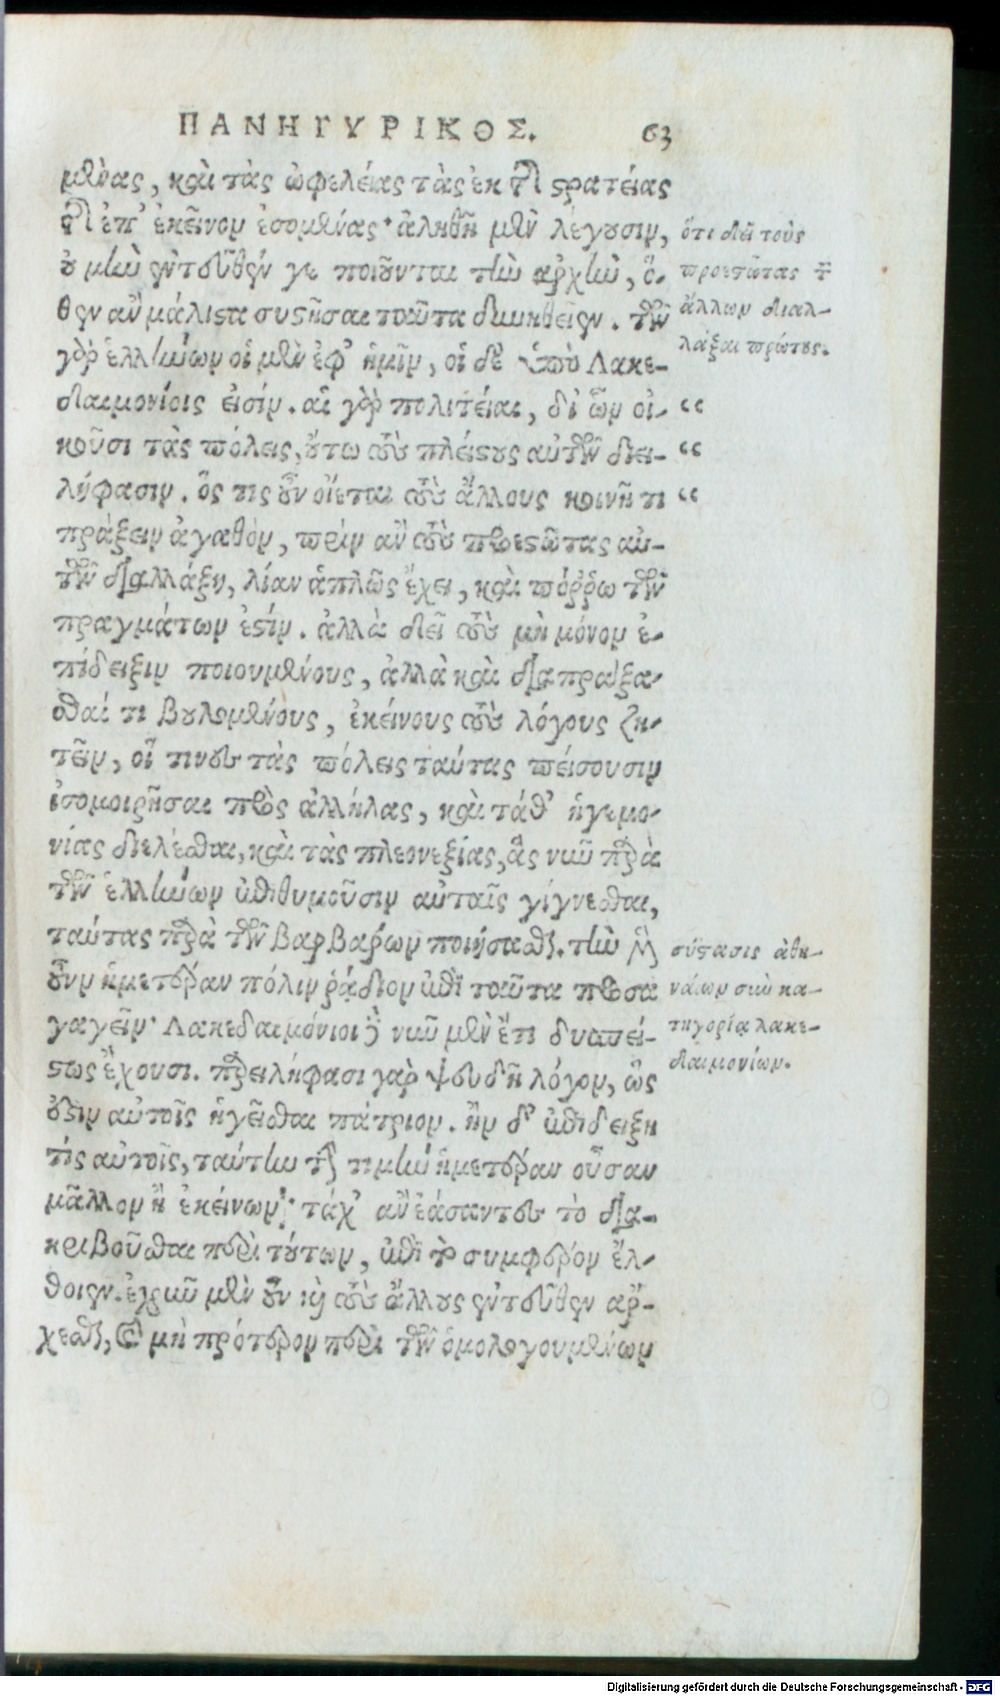 ΠΑΝΗΓΥΡΙΚΟΣ. 63
μένας, καὶ τὰς ὠφελείας τὰς ἐκ τῆς στρατείας
τῆς ἐπ' ἐκεῖνον ἐσομένας· ἀληθῆ μὲν λέγουσιν,
οὐ μὴν ἐντεῦθέν γε ποιοῦνται τὴν ἀρχὴν, ὅ-
θεν ἂν μάλιστα συστῆσαι ταῦτα δυνηθεῖεν. τῶν
γὰρ ἑλλήνων οἱ μὲν ἐφ' ἡμῖν, οἱ δὲ ὑπὸ Λακε-
δαιμονίοις εἰσίν. αἱ γὰρ πολιτείαι, δι' ὧν οἰ-
κοῦσι τὰς πόλεις, οὕτω τοὺς πλείστους αὐτῶν διει-
λήφασιν. ὅς τις οὖν οἴεται τοὺς ἄλλους κοινῇ τι
πράξειν ἀγαθὸν, πρὶν ἂν τοὺς προεστῶτας αὐ-
τῶν διαλλάξῃ, λίαν ἁπλῶς ἔχει, καὶ πόῤῥω τῶν
πραγμάτων ἐστίν. ἀλλὰ δεῖ τοὺς μὴ μόνον ἐ-
πίδειξιν ποιουμένους, ἀλλὰ καὶ διαπράξα-
σθαί τι βουλομένους, ἐκείνους τοὺς λόγους ζη-
τεῖν, οἵ τινες τὰς πόλεις ταύτας πείσουσιν
ἰσομοιρῆσαι πρὸς ἀλλήλας, καὶ τάθ' ἡγεμο-
νίας διελέσθαι, καὶ τὰς πλεονεξίας, ἃς νῦν παρὰ
τῶν ἑλλήνων ἐπιθυμοῦσιν αὐταῖς γίγνεσθαι,
ταύτας παρὰ τῶν βαρβάρων ποιήσασθαι. τὴν μὲν
οὖν ἡμετέραν πόλιν ῥᾴδιον ἐπὶ ταῦτα προσα
γαγεῖν· Λακεδαιμόνιοι δὲ νῦν μὲν ἔτι δυσπεί-
στως ἔχουσι. παρειλήφασι γὰρ ψευδῆ λόγον, ὡς
ἔστιν αὐτοῖς ἡγεῖσθαι πάτριον. ἢν δ' ἐπιδείξῃ
τίς αὐτοῖς, ταύτην τὴν τιμὴν ἡμετέραν οὖσαν
μᾶλλον ἢ ἐκείνων· τάχ' ἂν ἐάσαντες τὸ δια-
κριβοῦσθαι περὶ τούτων, ἐπὶ τὸ συμφέρον ἔλ-
θοιεν. ἐχρῆν μὲν οὖν καὶ τοὺς ἄλλους ἐντεῦθεν ἄρ-
χεσθαι, καὶ μὴ πρότερον περὶ τῶν ὁμολογουμένων
ὅτι δεῖ τοὺς
προεστῶτας τῶν
ἄλλων διαλ-
λάξαι πρώτους.
“
“
“
σύστασις ἀθη-
ναίων σὺν κα-
τηγορίᾳ λακε-
δαιμονίων.
Digitalisierung gefördert durch die Deutsche Forschungsgemeinschaft - DFG